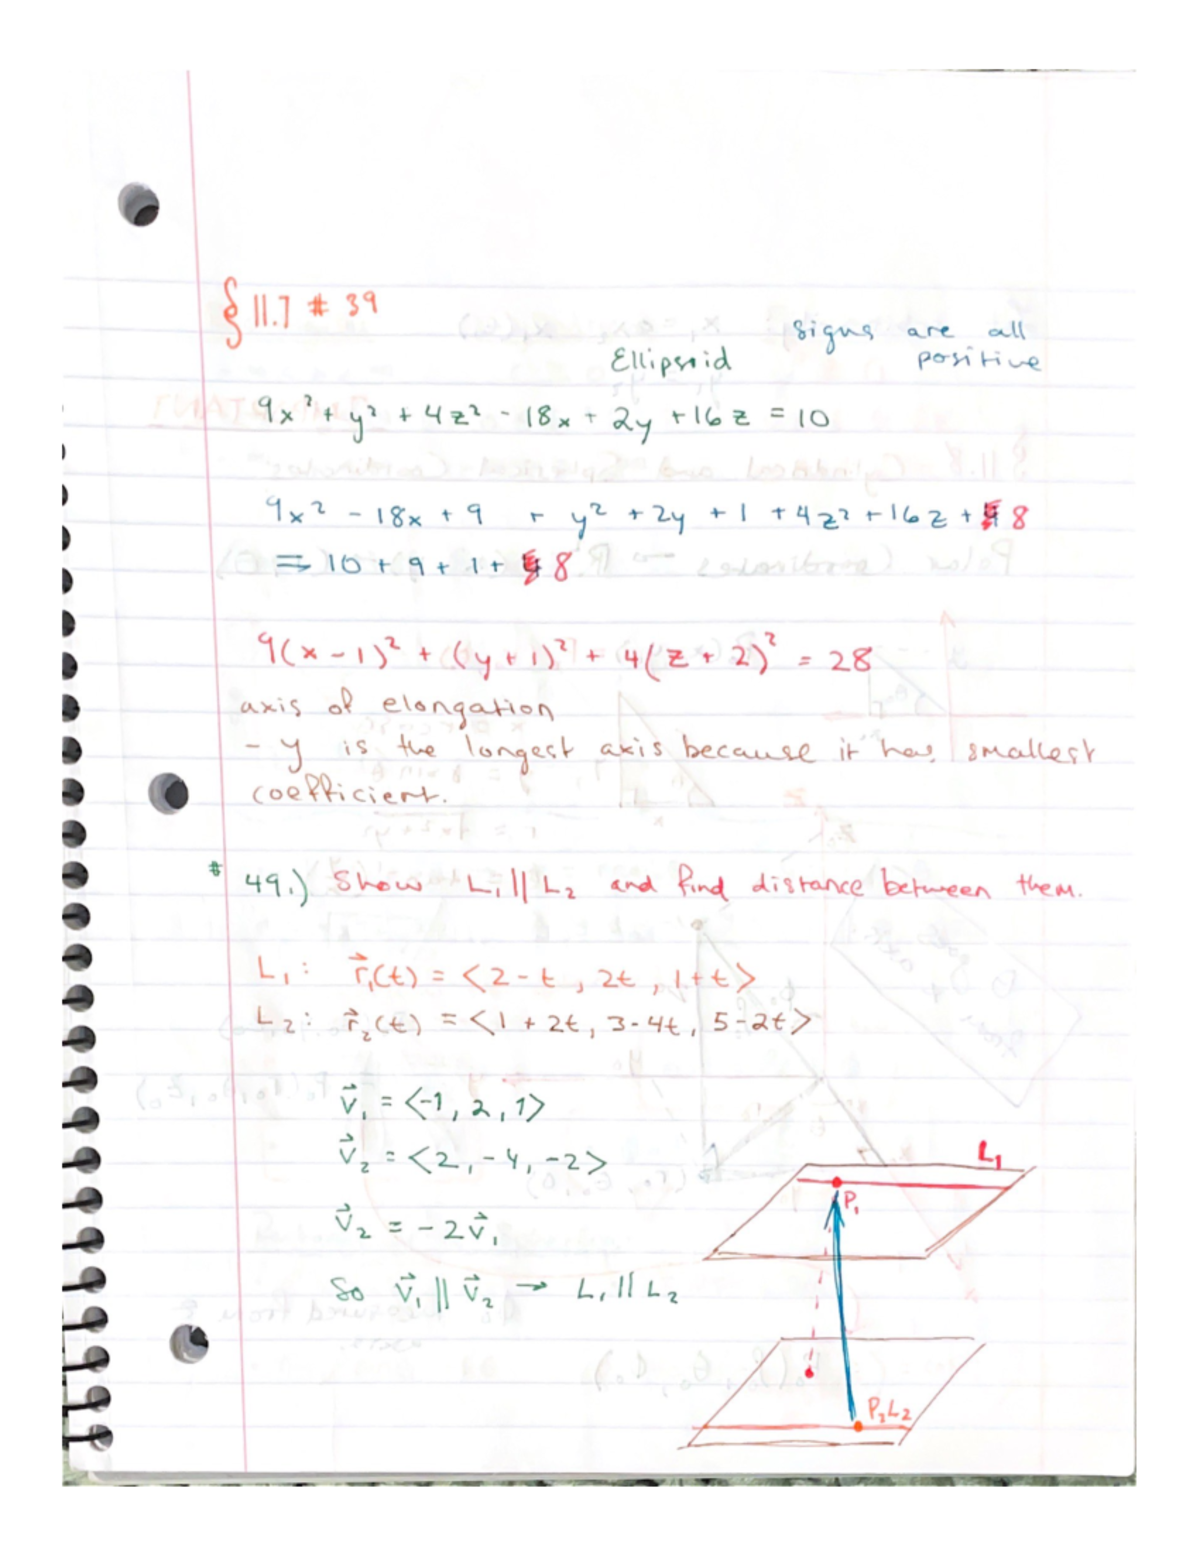 § 11.7 # 39
signs are all
Ellipsoid positive
9x² + y² + 4z² - 18x + 2y + 16z = 10
9x² - 18x + 9 + y² + 2y + 1 + 4z² + 16z + 8
⇒ 10 + 9 + 1 + 8
9(x - 1)² + (y + 1)² + 4(z + 2)² = 28
axis of elongation
- y is the longest axis because it has smallest
coefficient.
# 49.) Show L₁ || L₂ and find distance between them.
L₁: r⃗₁(t) = <2 - t, 2t, 1 + t>
L₂: r⃗₂(t) = <1 + 2t, 3 - 4t, 5 - 2t>
v⃗₁ = <-1, 2, 1>
v⃗₂ = <2, -4, -2>
L₁
P₁
v⃗₂ = -2v⃗₁
So v⃗₁ || v⃗₂ → L₁ || L₂
P₂L₂